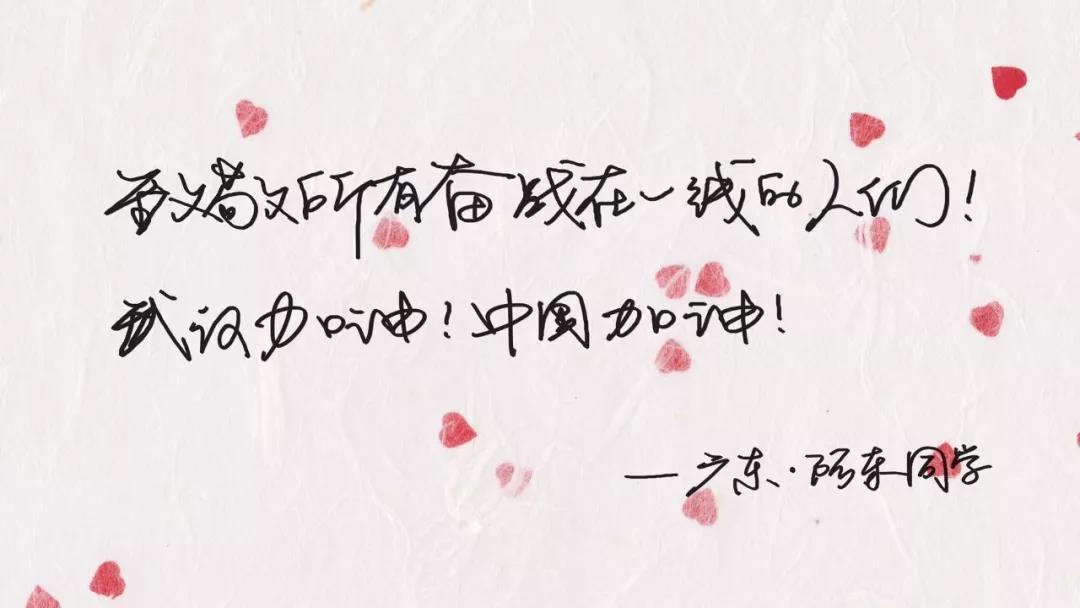 致敬所有奋战在一线的人们!
武汉加油!中国加油!
—广东·陈东同学